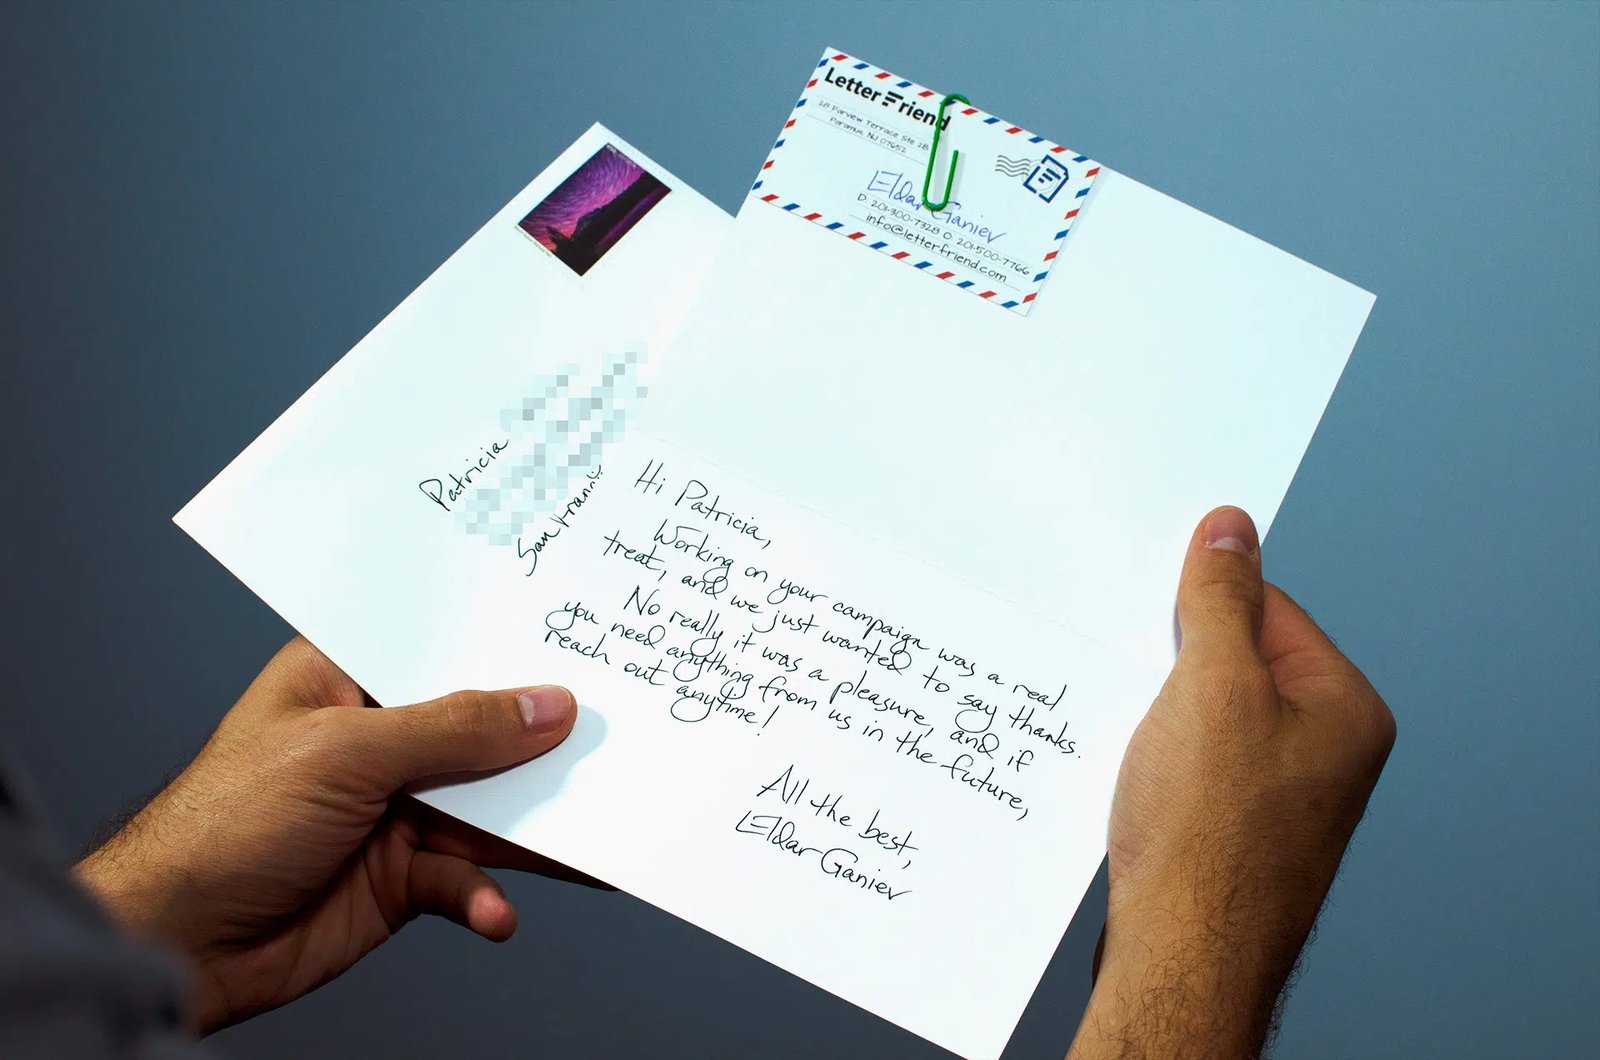 Letter Friend
28 Farview Terrace Ste 2B
Paramus NJ 07652
Eldar Ganiev
D: 201-300-7328 O: 201-500-7766
info@letterfriend.com
Patricia
San
Hi Patricia,
Working on your campaign was a real
treat, and we just wanted to say thanks.
No really it was a pleasure, and if
you need anything from us in the future,
reach out anytime!
All the best,
Eldar Ganiev